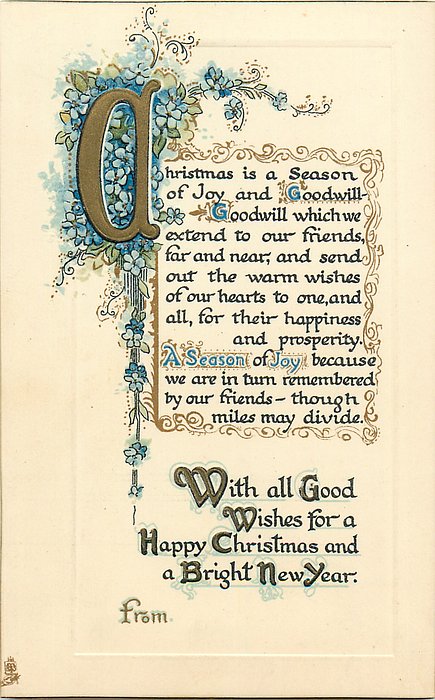 Christmas is a Season
of Joy and Goodwill—
Goodwill which we
extend to our friends,
far and near; and send
out the warm wishes
of our hearts to one, and
all, for their happiness
and prosperity.
A Season of Joy because
we are in turn remembered
by our friends — though
miles may divide.
With all Good
Wishes for a
Happy Christmas and
a Bright New Year.
From